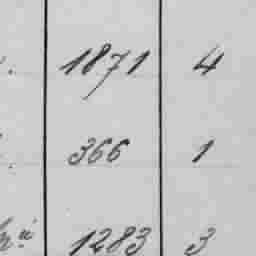 1871 4
366 1
1283 3